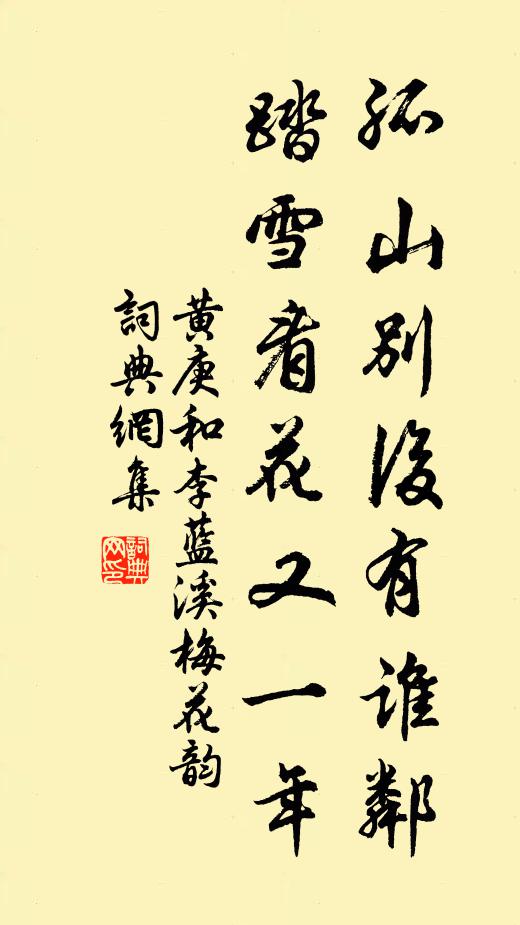 孤山別後有誰鄰
踏雪看花又一年
黄庚和李藍溪梅花韵
詞典網集
詞典网印